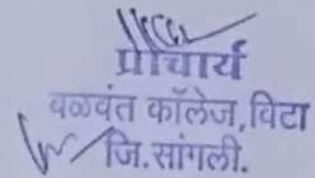 प्राचार्य
वळवंत कॉलेज,विटा
जि.सांगली.